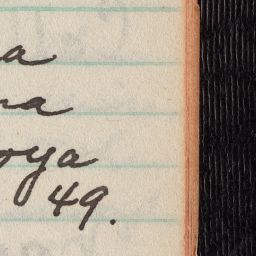 a
na
oya
49.